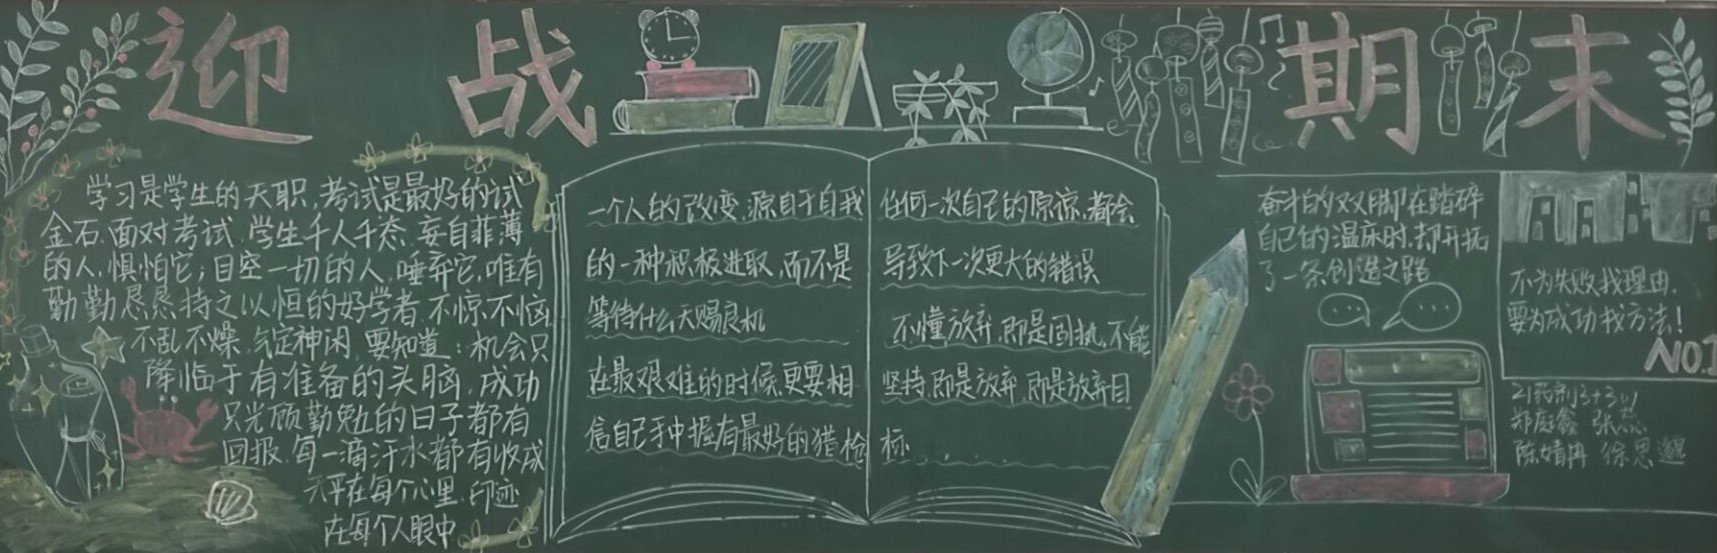 迎战期末
学习是学生的天职,考试是最好的试
金石.面对考试,学生千人千态.妄自菲薄
的人,惧怕它;目空一切的人,唾弃它,唯有
勤勤恳恳持之以恒的好学者,不惊不恼
不乱不燥,气定神闲,要知道:机会只
降临于有准备的头脑,成功
只光顾勤勉的日子都有
回报.每一滴汗水都有收成
天平在每个心里.印迹
在每个人眼中
一个人的改变,源自于自我
的一种积极进取,而不是
等待什么天赐良机
在最艰难的时候,更要相
信自己手中握有最好的猎枪
任何一次自己的原谅,都会
导致下一次更大的错误
不懂放弃,即是固执,不能
坚持,即是放弃,即是放弃目
标......
奋斗的双脚在踏碎
自己的温床时,却开拓
了一条创造之路
不为失败找理由,
要为成功找方法!
NO.1
21药剂3+3(1)
郑庭鑫 张蕊
陈婧冉 徐思